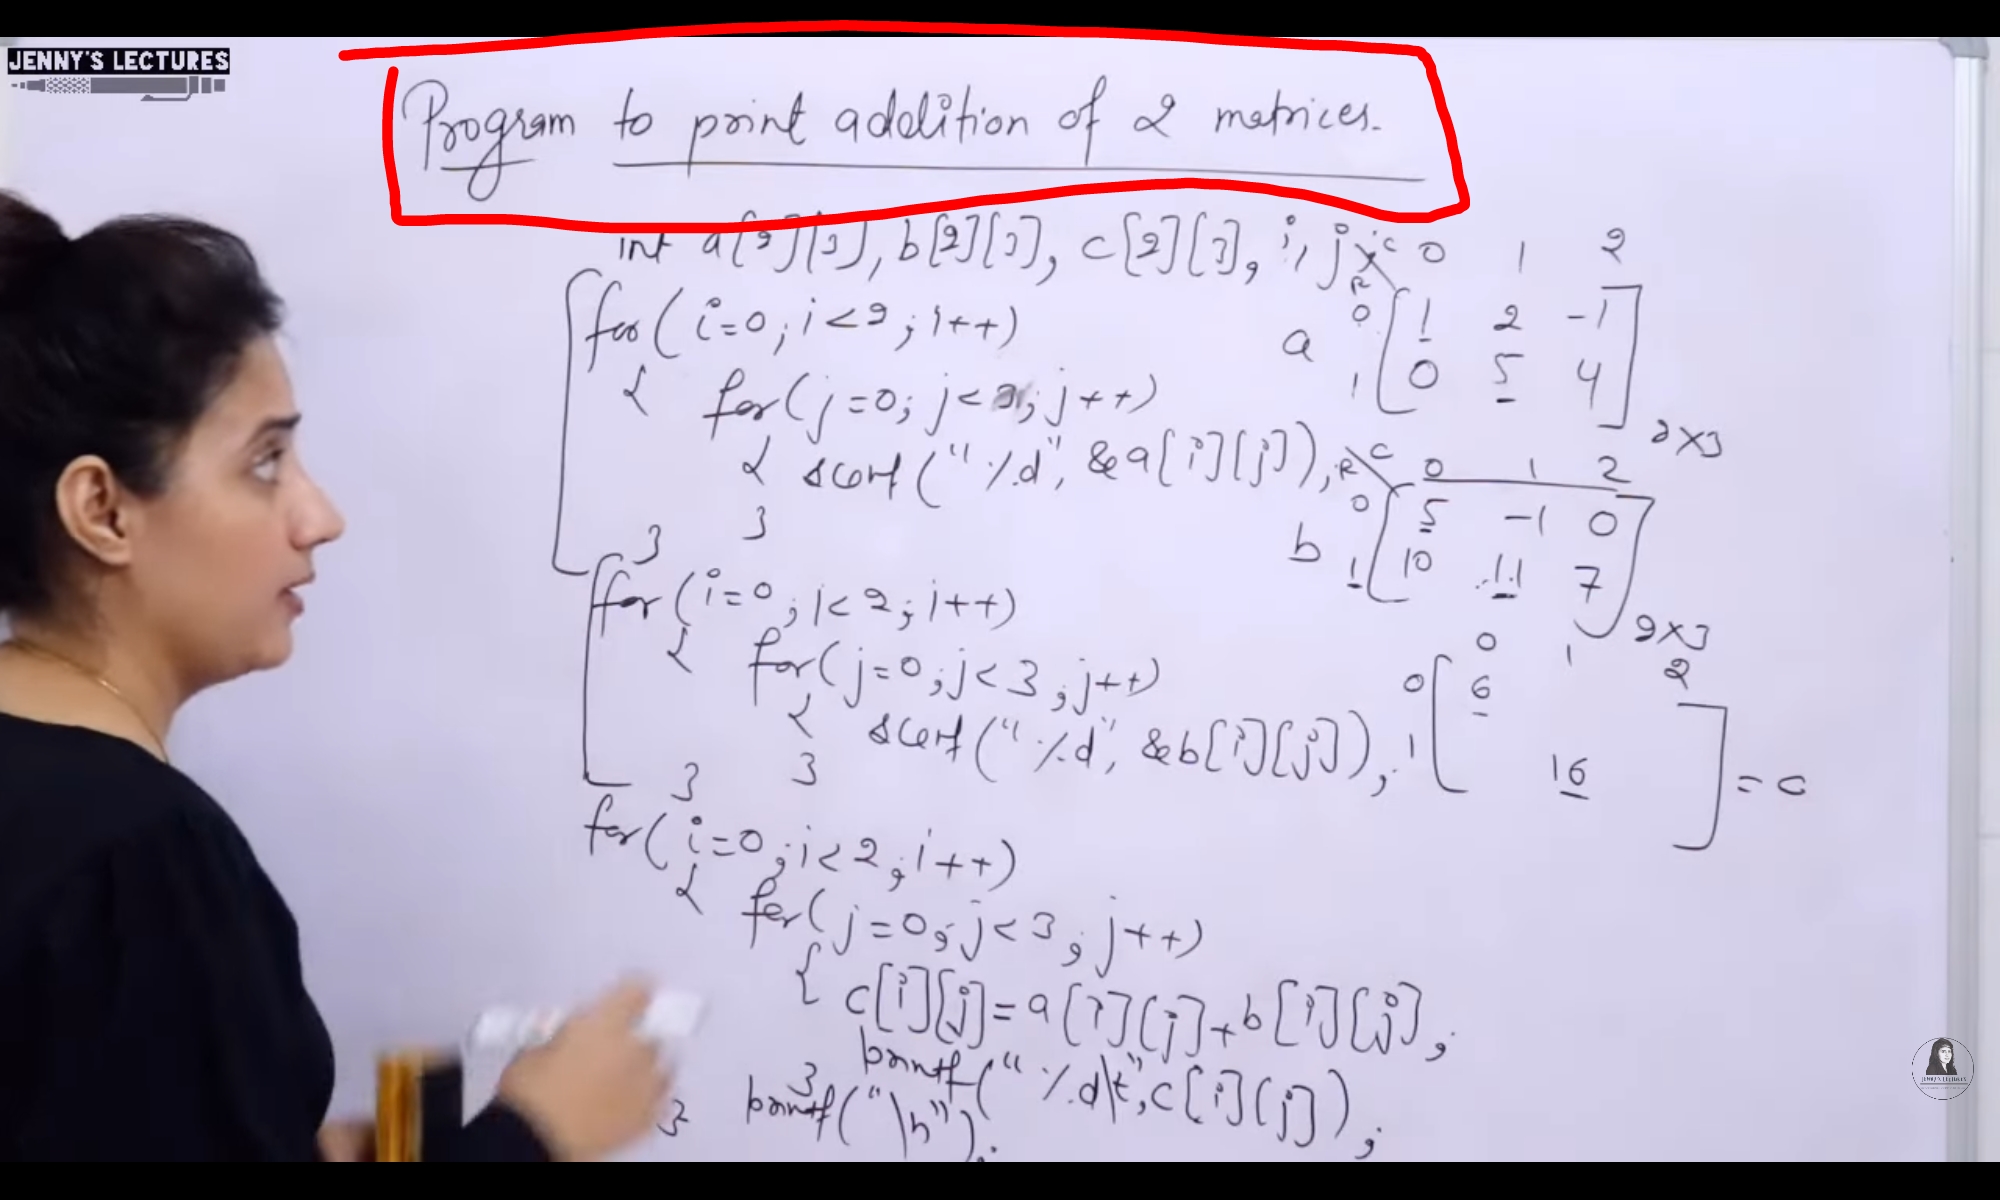 JENNY'S LECTURES
Program to print addition of 2 matrices.
int a[2][3], b[2][3], c[2][3], i, j;
for(i=0; i<2; i++)
{ for(j=0; j<3; j++)
{ scanf("%d", &a[i][j]);
}
}
for(i=0; i<2; i++)
{ for(j=0; j<3; j++)
{ scanf("%d", &b[i][j]);
}
}
for(i=0; i<2; i++)
{ for(j=0; j<3; j++)
{ c[i][j]=a[i][j]+b[i][j];
printf("%d\t", c[i][j]);
}
printf("\n");
}
C 0 1 2
R
0 1 2 -1
a
1 0 5 4
2×3
R C 0 1 2
0 5 -1 0
b
1 10 11 7
2×3
0 1 2
0 6
1 16
= c